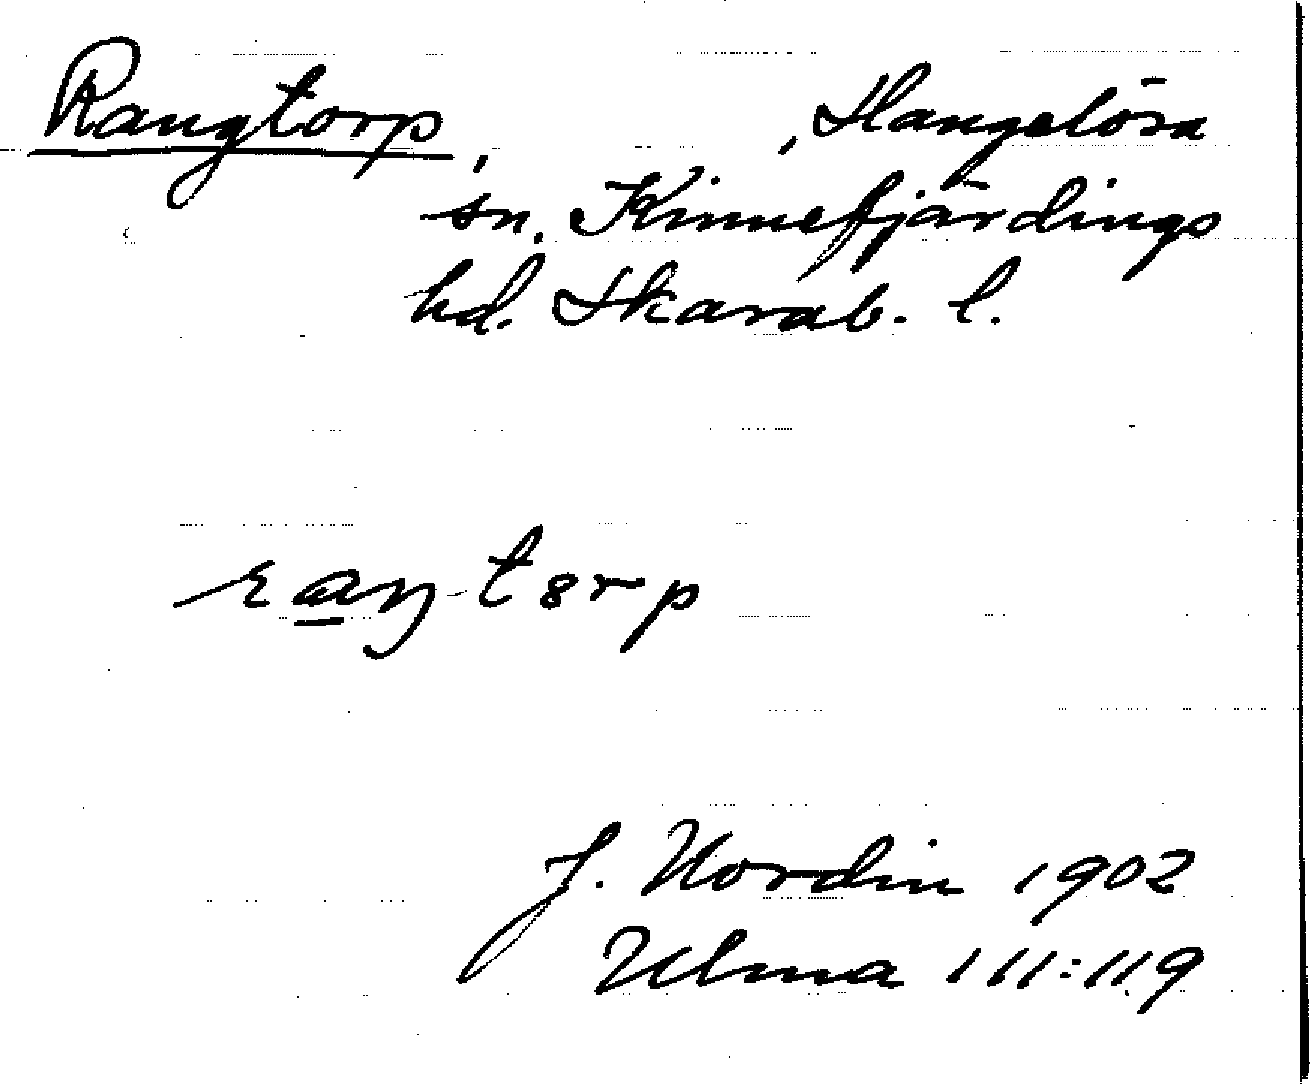 Rangtorp, , Slangelösa
sn. Kinnefjärdings
hd. Skarab. l.
raŋ-tɵrp
J. Nordin 1902
Ulma 111:119